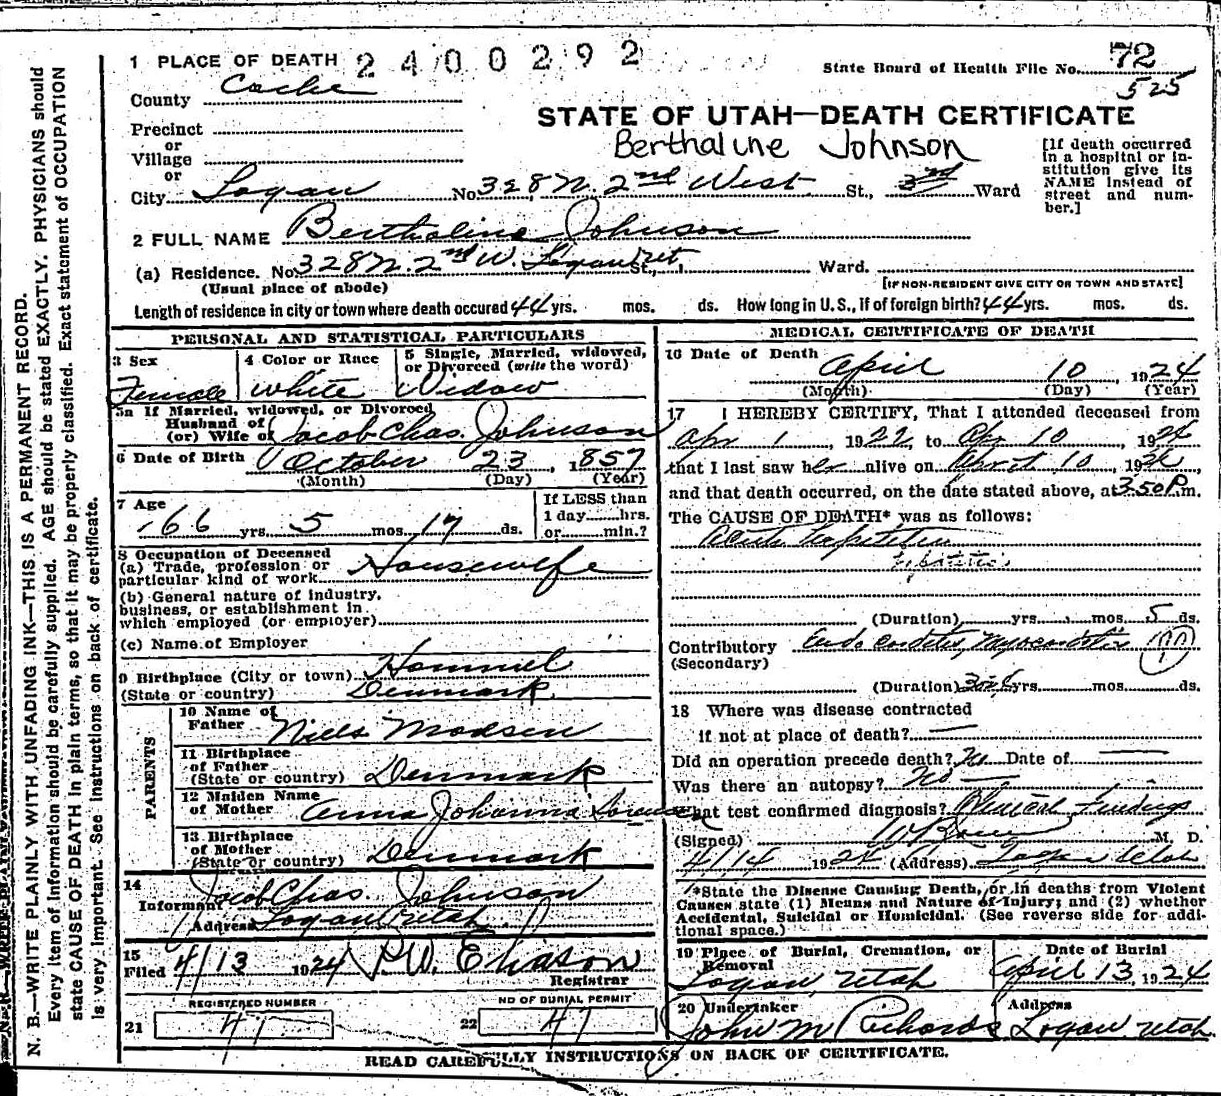 1 PLACE OF DEATH 2400292
State Board of Health File No. 72
525
County Cache
STATE OF UTAH—DEATH CERTIFICATE
Precinct
or
Village
or
Berthaline Johnson
[If death occurred in a hospital or institution give its NAME instead of street and number.]
City Logan No. 328 N. 2nd West St., 3rd Ward
2 FULL NAME Berthaline Johnson
(a) Residence. No. 328 N. 2nd W. Logan St., Ward.
(Usual place of abode) [IF NON-RESIDENT GIVE CITY OR TOWN AND STATE]
Length of residence in city or town where death occured 44 yrs. mos. ds. How long in U.S., if of foreign birth? 44 yrs. mos. ds.
PERSONAL AND STATISTICAL PARTICULARS
3 Sex
Female
4 Color or Race
White
5 Single, Married, widowed, or Divorced (write the word)
Widow
5a If Married, widowed, or Divorced
Husband of
(or) Wife of Jacob Chas. Johnson
6 Date of Birth October 23, 1857
(Month) (Day) (Year)
7 Age
66 yrs 5 mos. 17 ds.
If LESS than
1 day......hrs.
or......min.?
8 Occupation of Deceased
(a) Trade, profession or
particular kind of work Housewife
(b) General nature of industry,
business, or establishment in
which employed (or employer)
(c) Name of Employer
9 Birthplace (City or town) Hammel
(State or country) Denmark
PARENTS
10 Name of
Father Niels Madsen
11 Birthplace
of Father
(State or country) Denmark
12 Maiden Name
of Mother Anna Johanna
13 Birthplace
of Mother
(State or country) Denmark
14
Informant Jacob Chas. Johnson
Address Logan Utah
15
Filed 4/13 1924 P.W. Eliason
Registrar
REGISTERED NUMBER
21 47
NO OF BURIAL PERMIT
22 47
MEDICAL CERTIFICATE OF DEATH
16 Date of Death
April 10 1924
(Month) (Day) (Year)
17 I HEREBY CERTIFY, That I attended deceased from
Apr 1, 1922, to Apr 10, 1924
that I last saw her alive on April 10, 1924,
and that death occurred, on the date stated above, at 3.50 P.m.
The CAUSE OF DEATH* was as follows:
Acute
(Duration) yrs. mos. 5 ds.
Contributory Endocarditis, Myocarditis
(Secondary)
(Duration) yrs. mos. ds.
18 Where was disease contracted
if not at place of death? —
Did an operation precede death? No Date of —
Was there an autopsy? No —
What test confirmed diagnosis? Clinical Findings
(Signed) M. D.
4/14 1924 (Address) Logan Utah
*State the Disease Causing Death, or in deaths from Violent
Causes state (1) Means and Nature of Injury; and (2) whether
Accidental, Suicidal or Homicidal. (See reverse side for addi-
tional space.)
19 Place of Burial, Cremation, or
Removal
Logan, Utah
Date of Burial
April 13, 1924
20 Undertaker
John M Richards
Address
Logan Utah.
READ CAREFULLY INSTRUCTIONS ON BACK OF CERTIFICATE.
N. B.—WRITE PLAINLY WITH UNFADING INK—THIS IS A PERMANENT RECORD.
Every item of information should be carefully supplied. AGE should be stated EXACTLY. PHYSICIANS should
state CAUSE OF DEATH in plain terms, so that it may be properly classified. Exact statement of OCCUPATION
is very important. See instructions on back of certificate.